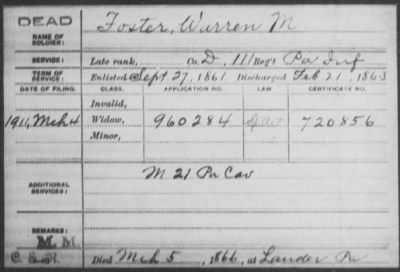 DEAD
NAME OF SOLDIER:
Foster, Warren M
SERVICE: Late rank, Co. D, 111 Reg't Pa Inf
TERM OF SERVICE: Enlisted Sept 27, 1861 Discharged Feb 21, 1863
DATE OF FILING. CLASS. APPLICATION NO. LAW CERTIFICATE NO.
Invalid,
1911, Mch 4 Widow, 960284 720856
Minor,
ADDITIONAL SERVICES: M 21 Pa Cav
REMARKS:
M.M.
Died Mch 5, 1866, at Lander Pa